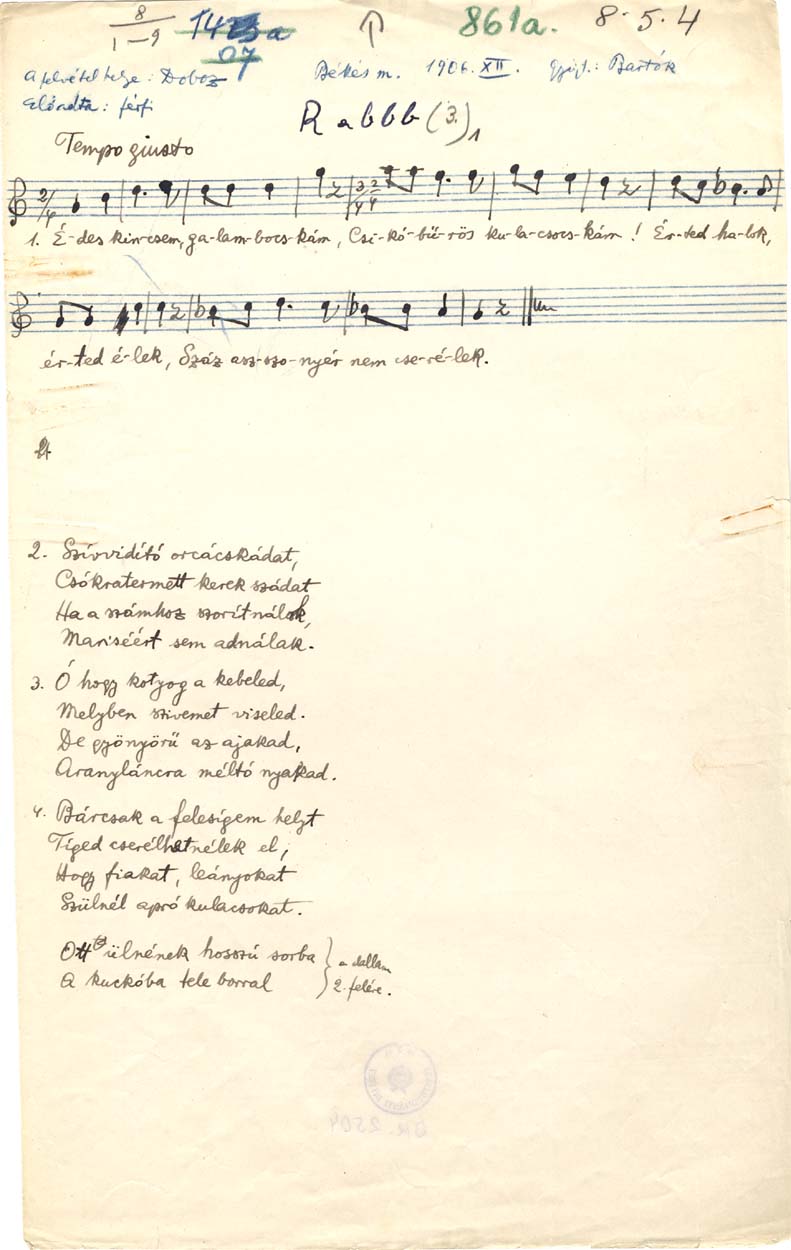 8 / 1-9
861a.
8. 5. 4
07
A felvétel helye: Doboz
Békés m. 1906. XII. Gyűjt.: Bartók
Előadta: férfi
R a b b b (3.)1
Tempo giusto
2/4 3/4 2/4
1. É-des kin-csem, ga-lam-bocs-kám, Csi-kó-bű-rös ku-la-csocs-kám! Ér-ted ha-lok,
ér-ted é-lek, Száz asz-szo-nyér nem cse-ré-lek.
2. Szívvidító orcácskádat,
Csókratermett kerek szádat
Ha a számhoz szorítnálok,
Mariséért sem adnálak.
3. Ó hogy kotyog a kebeled,
Melyben szivemet viseled.
De gyönyörű az ajakad,
Aranyláncra méltó nyakad.
4. Bárcsak a feleségem helyt
Tíged cserélhetnélek el,
Hogy fiakat, leányokat
Szülnél apró kulacsokat.
Ott ülnének hosszú sorba
A kuckóba tele borral
a dallam
2. felére.